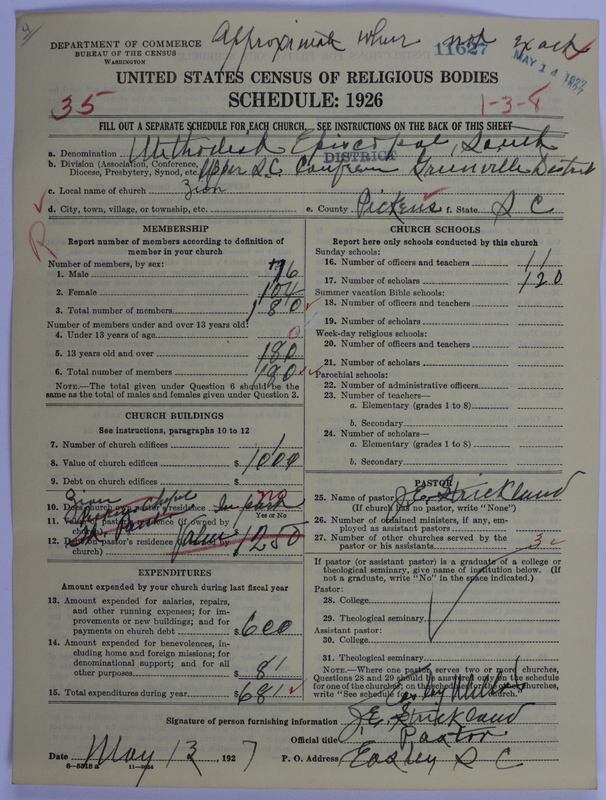 Approximate when not exact
DEPARTMENT OF COMMERCE
BUREAU OF THE CENSUS
WASHINGTON
11627
MAY 14 1927
UNITED STATES CENSUS OF RELIGIOUS BODIES
SCHEDULE: 1926
35
1-3-8
FILL OUT A SEPARATE SCHEDULE FOR EACH CHURCH. SEE INSTRUCTIONS ON THE BACK OF THIS SHEET
a. Denomination Methodist Episcopal, South
DISTRICT
b. Division (Association, Conference, Diocese, Presbytery, Synod, etc. Upper S.C. Greenville District
c. Local name of church Zion
d. City, town, village, or township, etc. e. County Pickens f. State S C
R
MEMBERSHIP
Report number of members according to definition of
member in your church
Number of members, by sex:
1. Male 76
2. Female 104
3. Total number of members 180
Number of members under and over 13 years old:
4. Under 13 years of age 0
5. 13 years old and over 180
6. Total number of members 180
NOTE.—The total given under Question 6 should be the
same as the total of males and females given under Question 3.
CHURCH BUILDINGS
See instructions, paragraphs 10 to 12
7. Number of church edifices 1
8. Value of church edifices $ 1000
9. Debt on church edifices $
10. Does church own pastor's residence no
Yes or No
11. Value of pastor's residence (if owned by
church)
12. Debt on pastor's residence
church) Value $ 1250
EXPENDITURES
Amount expended by your church during last fiscal year
13. Amount expended for salaries, repairs,
and other running expenses; for im-
provements or new buildings; and for
payments on church debt $ 600
14. Amount expended for benevolences, in-
cluding home and foreign missions; for
denominational support; and for all
other purposes $ 81
15. Total expenditures during year $ 681
CHURCH SCHOOLS
Report here only schools conducted by this church
Sunday schools:
16. Number of officers and teachers 11
17. Number of scholars 120
Summer vacation Bible schools:
18. Number of officers and teachers
19. Number of scholars
Week-day religious schools:
20. Number of officers and teachers
21. Number of scholars
Parochial schools:
22. Number of administrative officers
23. Number of teachers—
a. Elementary (grades 1 to 8)
b. Secondary
24. Number of scholars—
a. Elementary (grades 1 to 8)
b. Secondary
PASTOR
25. Name of pastor J.E. Strickland
(If church has no pastor, write "None")
26. Number of ordained ministers, if any, em-
ployed as assistant pastors
27. Number of other churches served by the
pastor or his assistants 3
If pastor (or assistant pastor) is a graduate of a college or
theological seminary, give name of institution below. (If
not a graduate, write "No" in the space indicated.)
Pastor:
28. College
29. Theological seminary
Assistant pastor:
30. College
31. Theological seminary
NOTE.—Where one pastor serves two or more churches,
Questions 28 and 29 should be answered only on the schedule
for one of the churches; on the schedules for the other churches,
write "See schedule for church."
Signature of person furnishing information J.E. Strickland
Official title Pastor
Date May 13, 1927 P. O. Address Easley S C
6—5518 a 11—9054